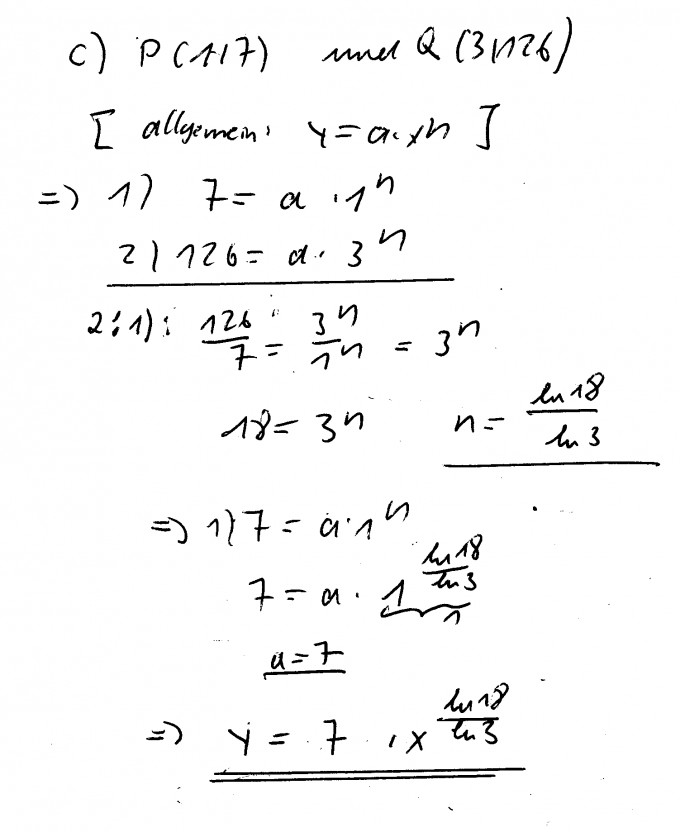 c) P(1|7) und Q(3|126)
[ allgemein: y = a · x^n ]
=> 1) 7 = a · 1^n
2) 126 = a · 3^n
2:1): 126/7 = 3^n/1^n = 3^n
18 = 3^n n = ln 18/ln 3
=> 1) 7 = a · 1^n
7 = a · 1^(ln 18/ln 3)
1
a = 7
=> y = 7 · x^(ln 18/ln 3)